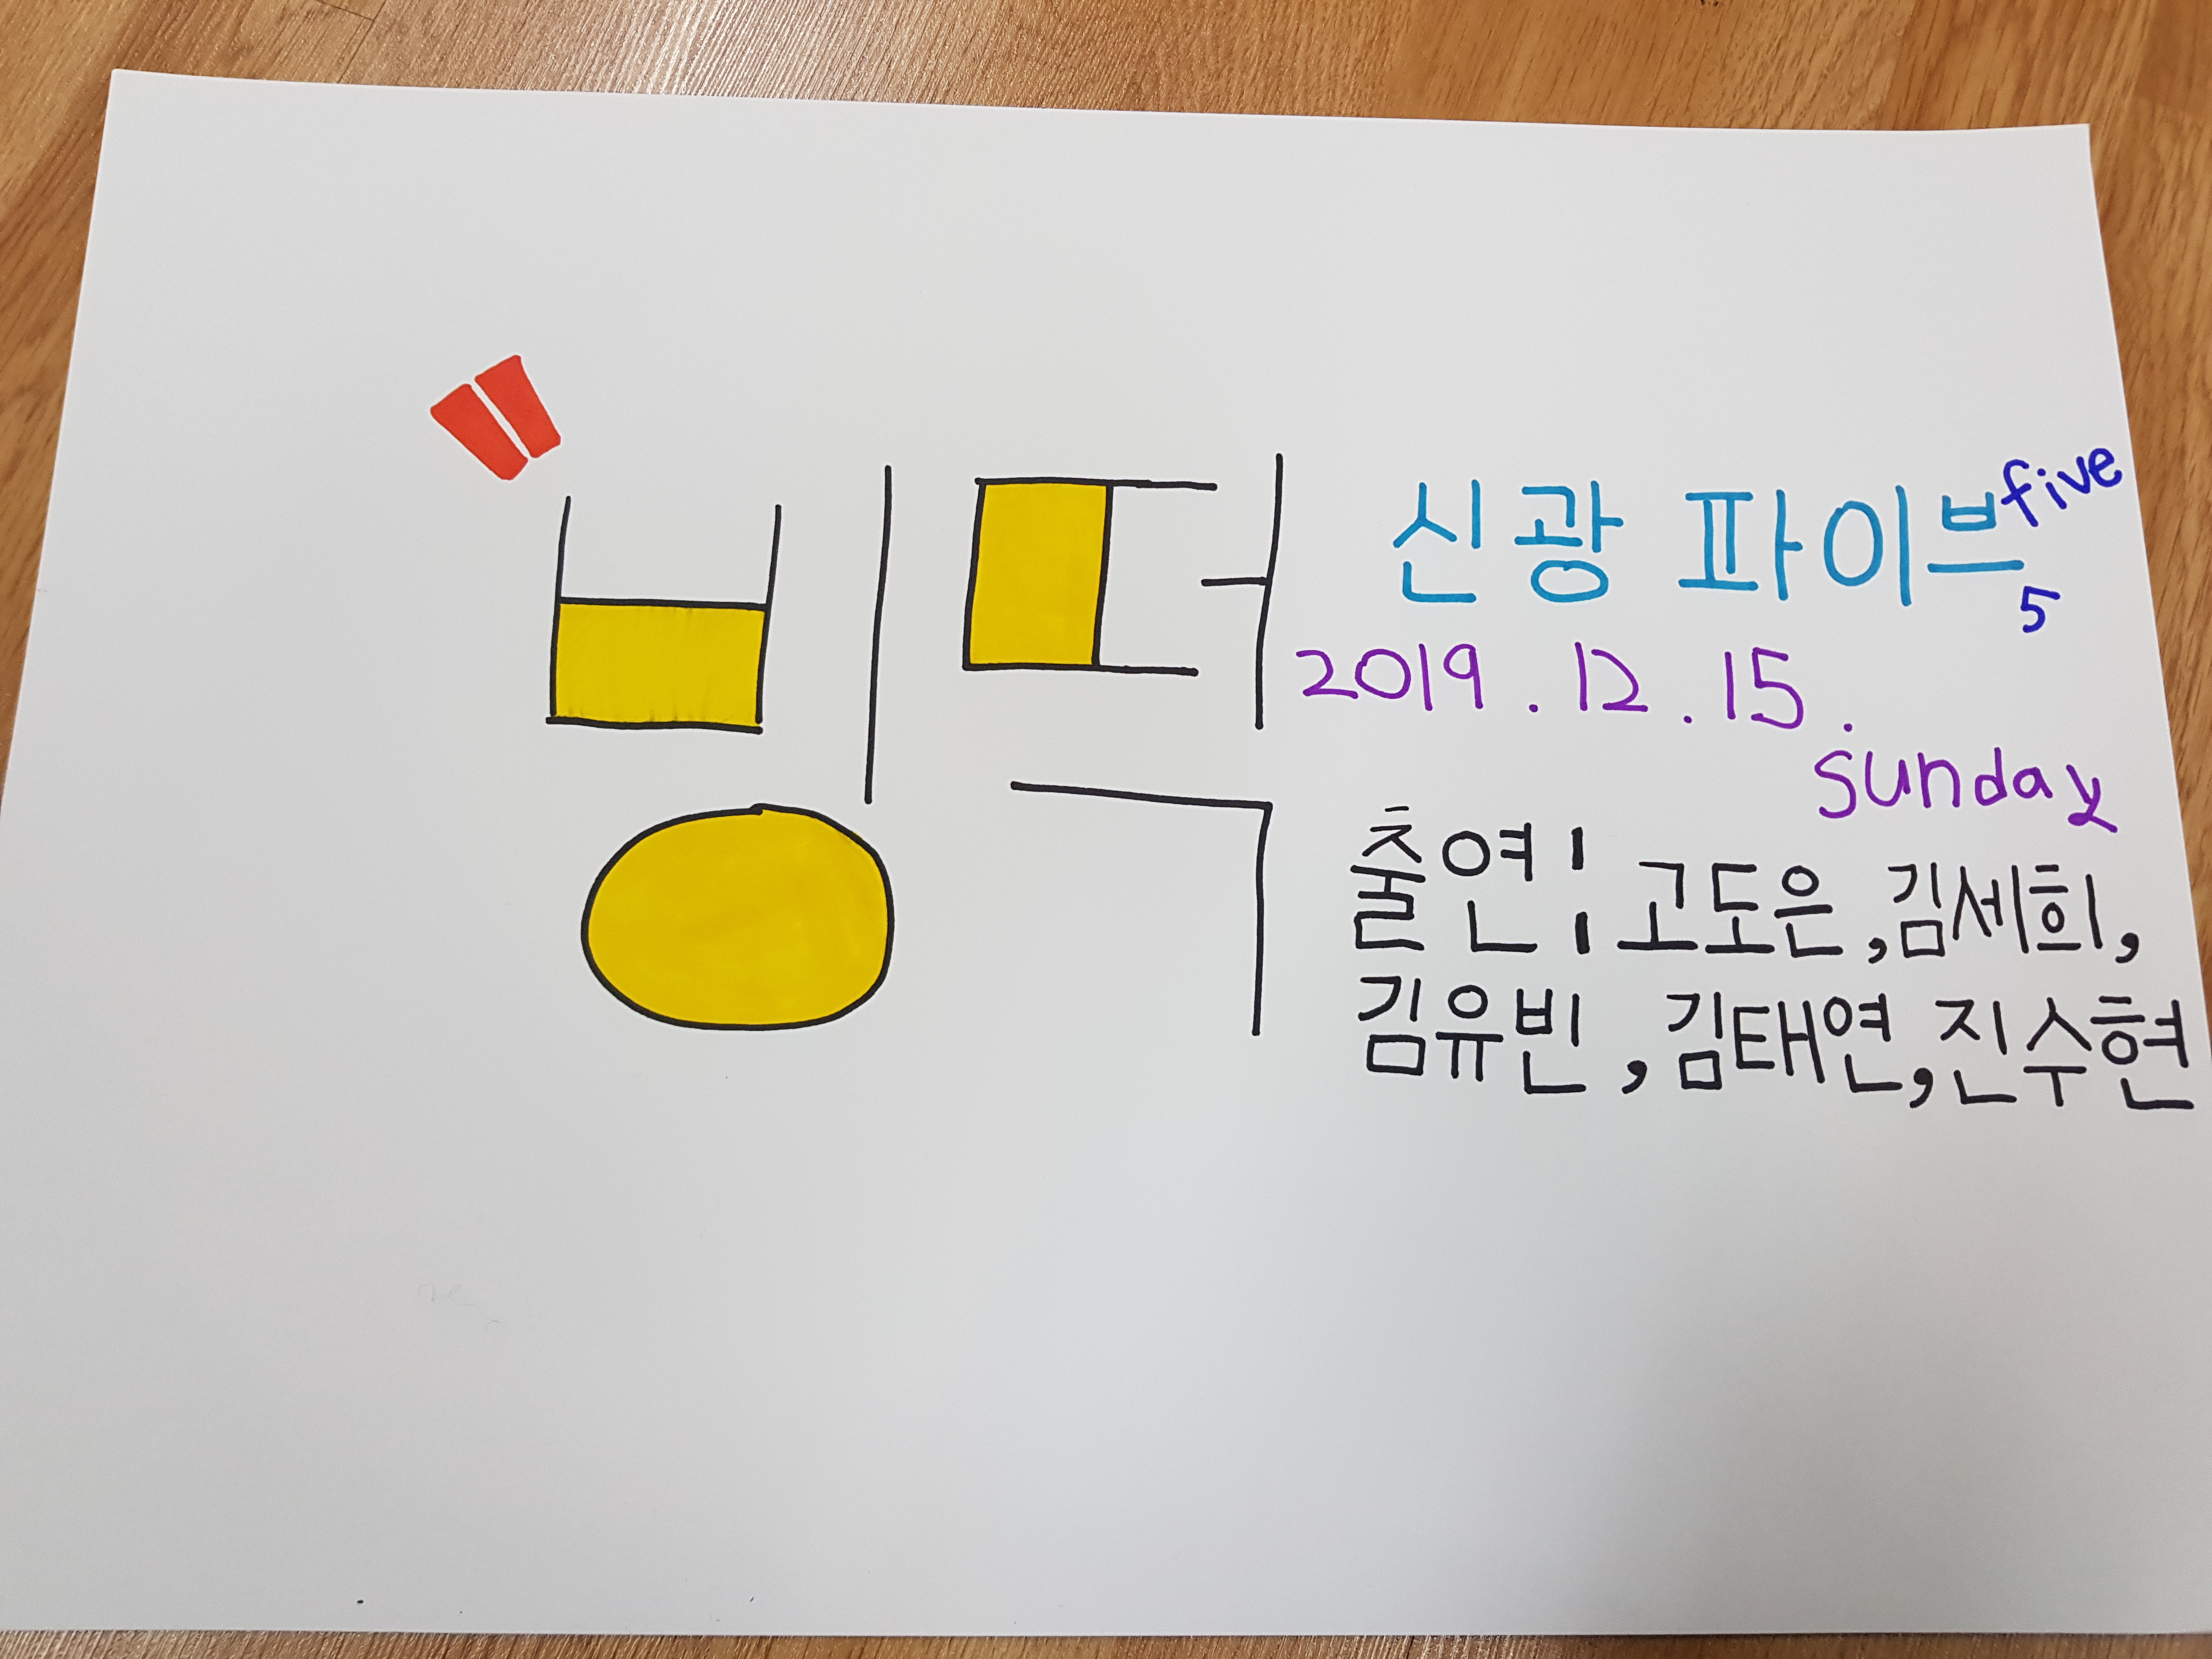 빙떡
신광 파이브 five
5
2019.12.15.
sunday
출연: 고도은, 김세희,
김유빈, 김태연, 진수현